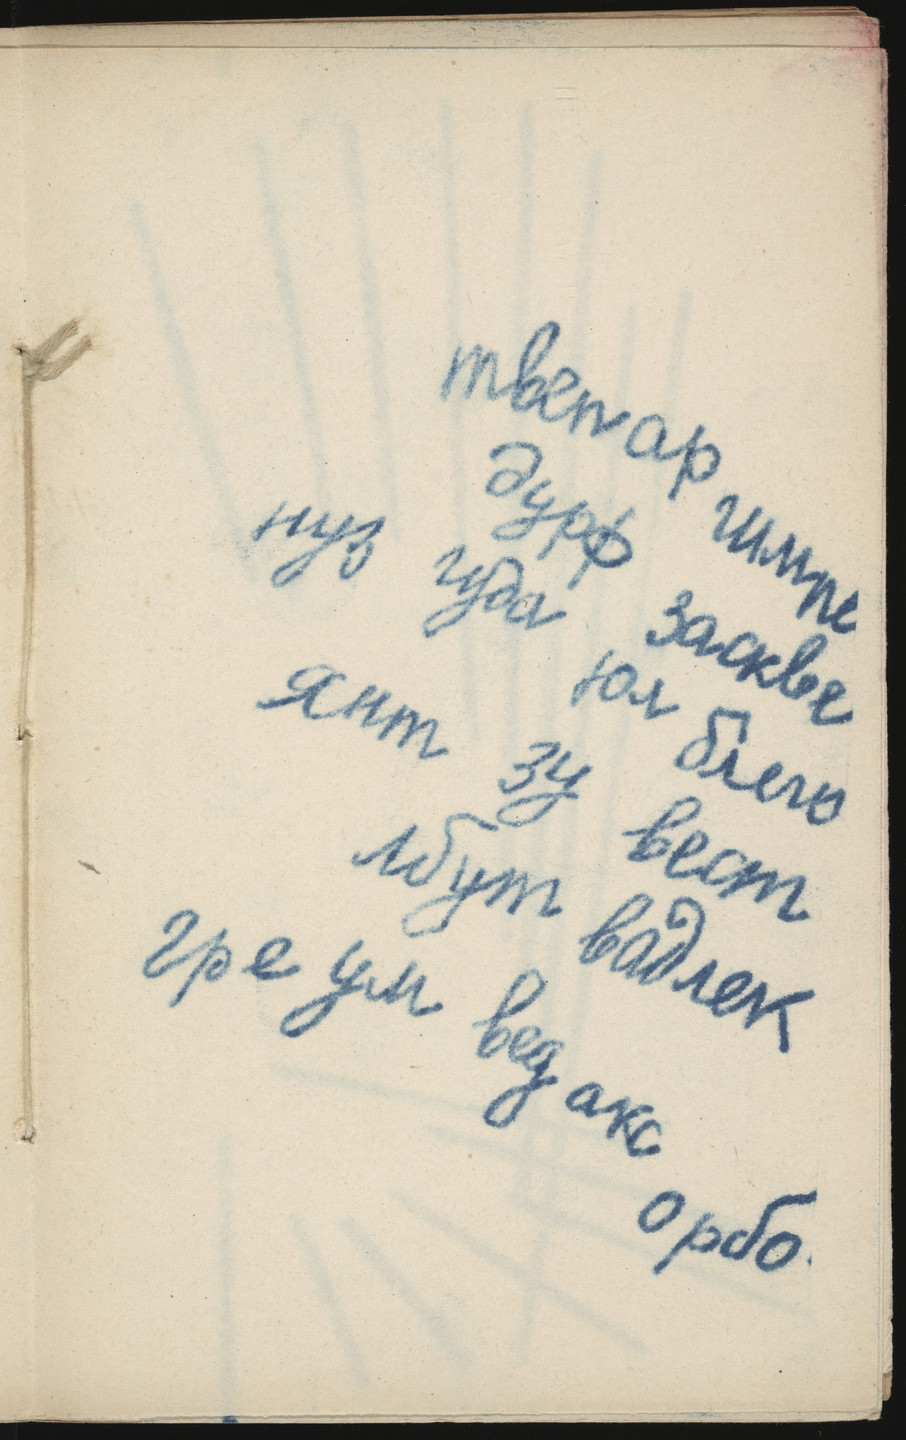 твепар шмре
дурф заскве
нуз уда юл блего
янт зу вест
лбут вадлек
гре ум вед акс
орбо.